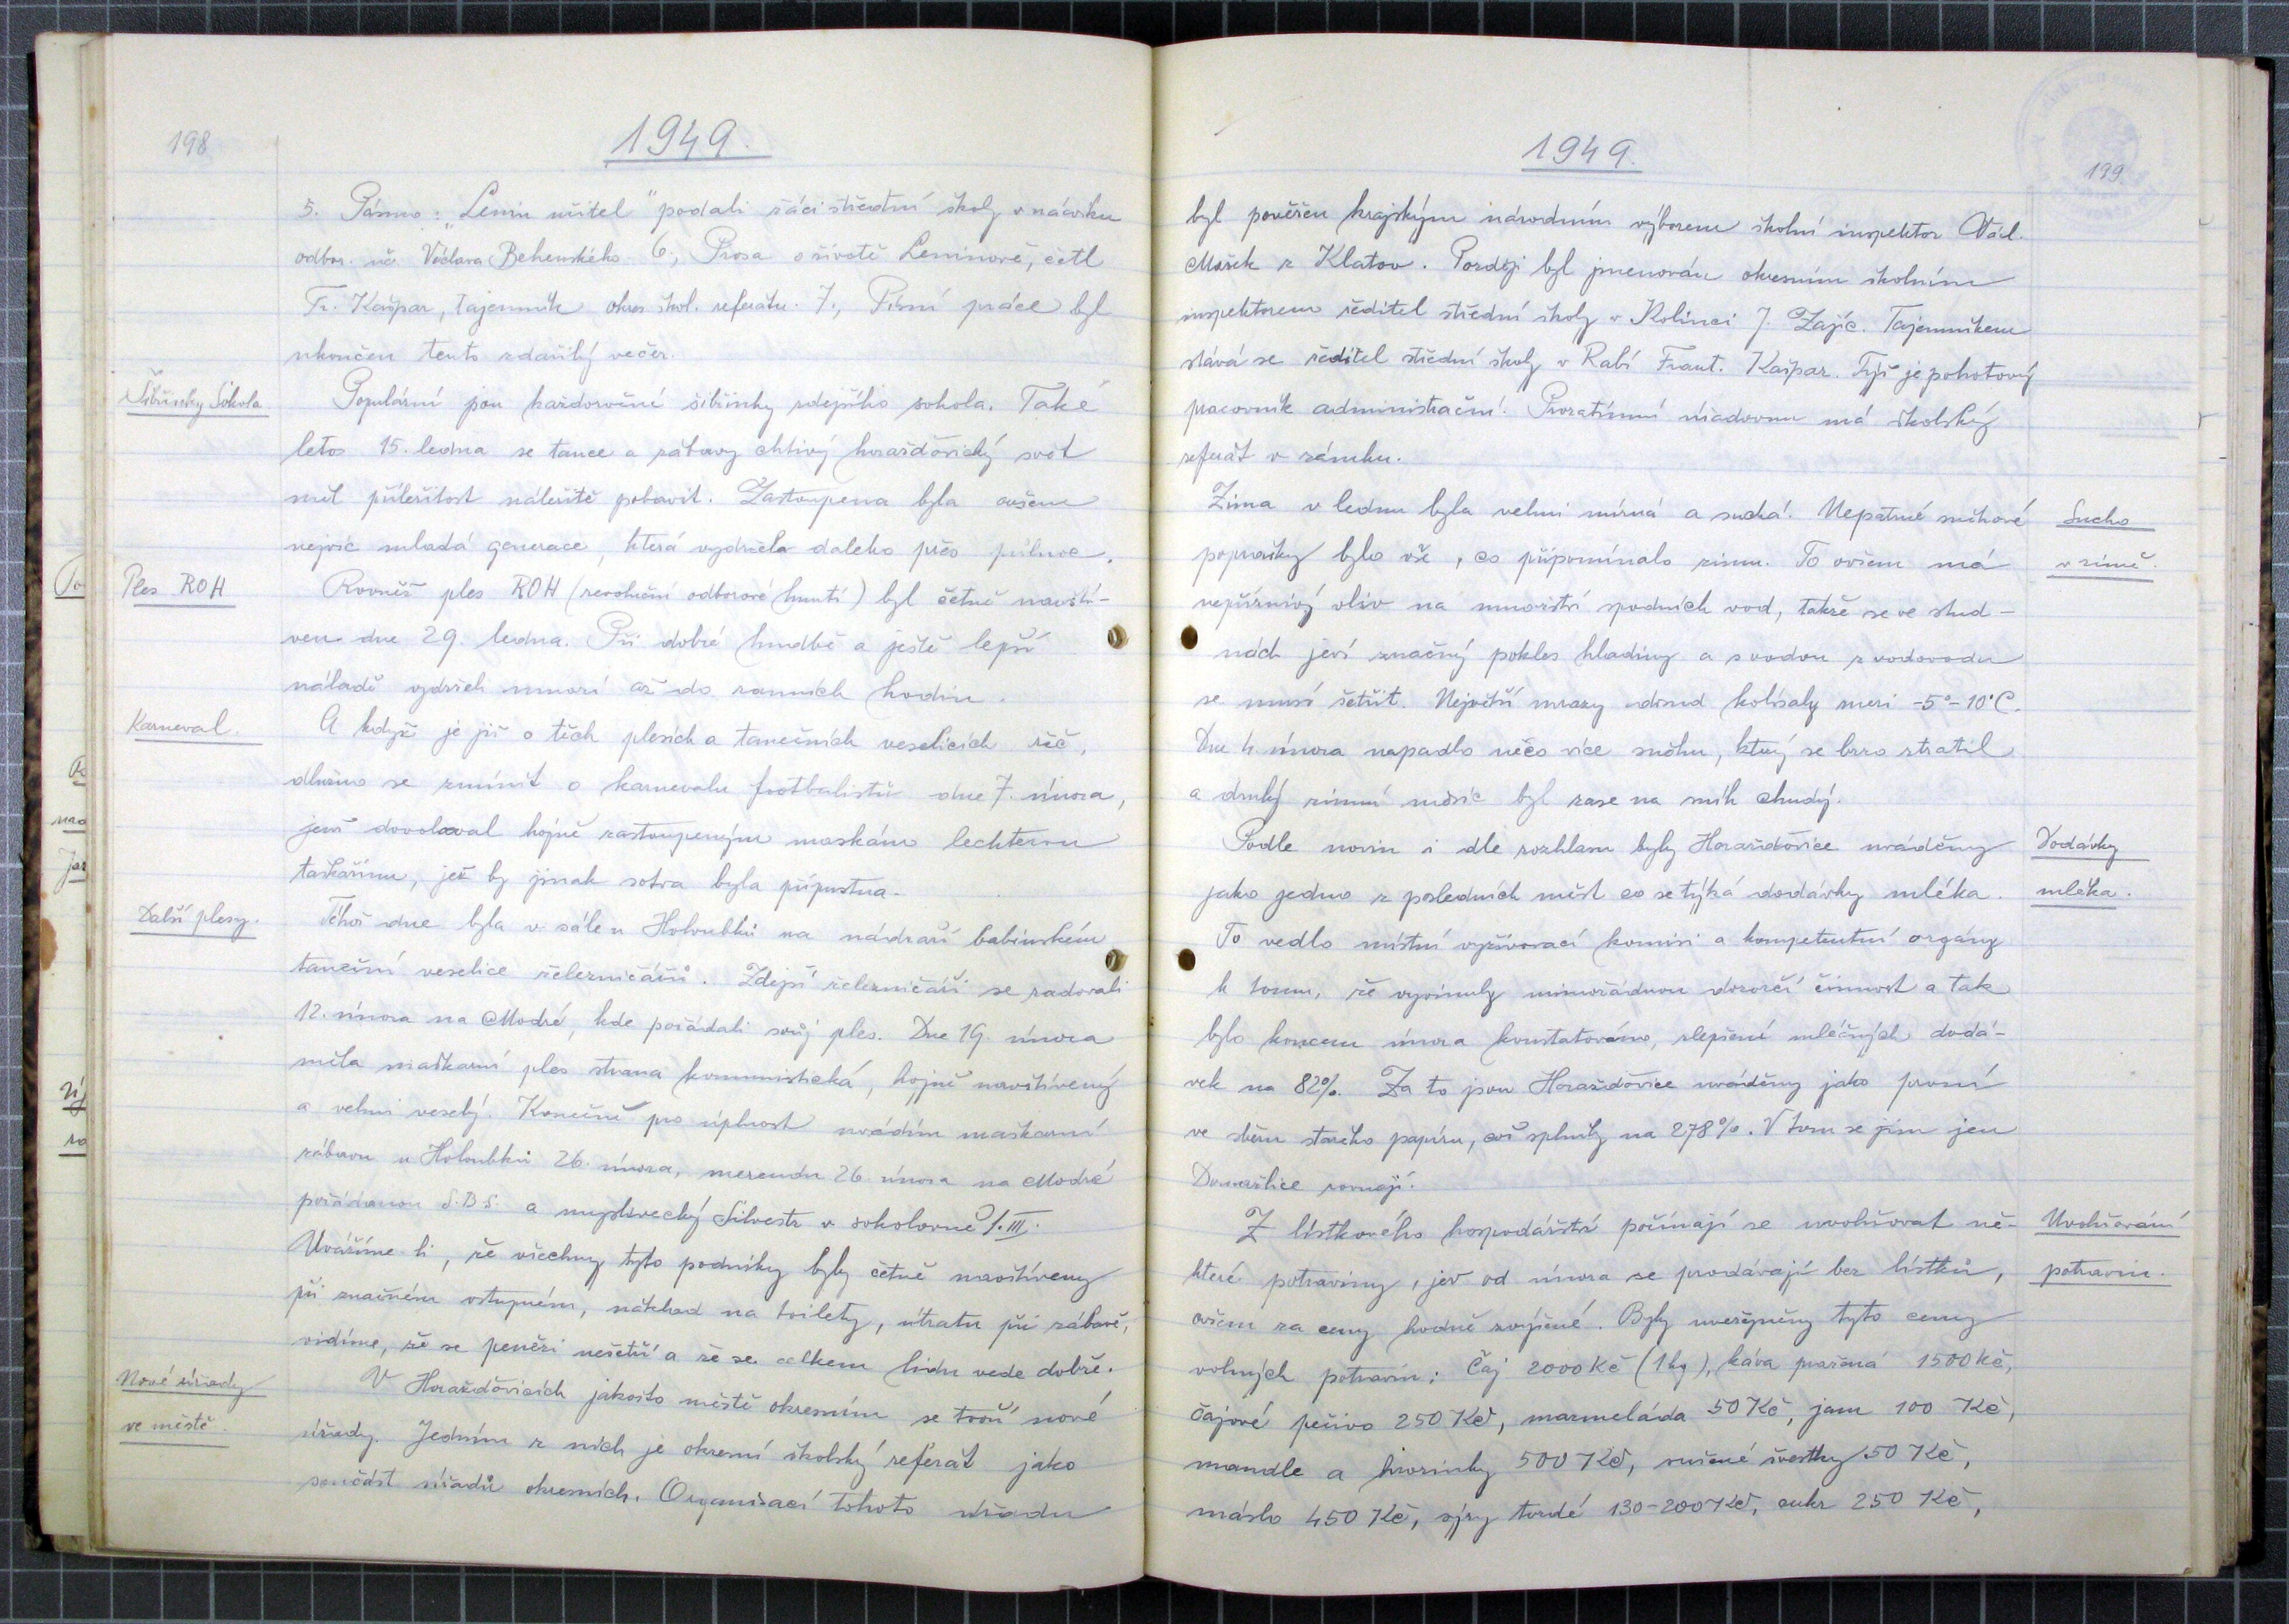 198
1949.
5. Pásmo: "Lenin učitel" podali žáci střední školy v nácviku
odbor. uč. Václava Behenského. 6, Prosa o životě Leninově, četl
Fr. Kašpar, tajemník okres. škol. referátu. 7., Písní práce byl
ukončen tento zdařilý večer.
Šibřinky Sokola.
Populární jsou každoroční šibřinky zdejšího sokola. Také
letos 15. ledna se tance a zábavy chtivý horažďovický svět
měl příležitost náležitě pobavit. Zastoupena byla ovšem
nejvíc mladá generace, která vydržela daleko přes půlnoc.
Ples ROH
Rovněž ples ROH (revoluční odborové hnutí) byl četně navští-
ven dne 29. ledna. Při dobré hudbě a ještě lepší
náladě vydrželi mnozí až do ranních hodin.
Karneval.
A když je již o těch plesích a tanečních veselicích řeč,
dlužno se zmínit o karnevalu footbalistů dne 7. února,
jenž dovoloval hojně zastoupeným maskám leckterou
taškařinu, jež by jinak sotva byla přípustna.
Další plesy.
Téhož dne byla v sále u Holoubků na nádraží babínském
taneční veselice železničářů. Zdejší železničáři se radovali
12. února na Modré, kde pořádali svůj ples. Dne 19. února
měla maškarní ples strana komunistická, hojně navštívený
a velmi veselý. Konečně pro úplnost uvádím maškarní
zábavu u Holoubků 26. února, merendu 26 února na Modré
pořádanou S.B.S. a myslivecký Silvestr v sokolovně 1.III.
Uvážíme-li, že všechny tyto podniky byly četně navštíveny
při značném vstupném, náklad na toilety, útratu při zábavě,
vidíme, že se penězi nešetří a že se celkem lidu vede dobře.
Nové úřady
ve městě.
V Horažďovicích jakožto městě okresním se tvoří nové
úřady. Jedním z nich je okresní školský referát jako
součást úřadů okresních. Organisací tohoto úřadu
1949.
199
byl pověřen krajským národním výborem školní inspektor Václ.
Mašek z Klatov. Později byl jmenován okresním školním
inspektorem ředitel střední školy v Kolinci J. Zajíc. Tajemníkem
stává se ředitel střední školy v Rabí Frant. Kašpar. Týž je pohotový
pracovník administrační. Prozatímní úřadovnu má školský
referát v zámku.
Zima v lednu byla velmi mírná a suchá. Nepatrné sněhové
Sucho
poprašky bylo vše, co připomínalo zimu. To ovšem má
v zimě.
nepříznivý vliv na množství spodních vod, takže se ve stud-
nách jeví značný pokles hladiny a s vodou z vodovodu
se musí šetřit. Největší mrazy odsud kolísaly mezi -5°-10°C.
Dne 4. února napadlo něco více sněhu, který se brzo ztratil
a druhý zimní měsíc byl zase na sníh chudý.
Podle novin i dle rozhlasu byly Horažďovice uváděny
Dodávky
jako jedno z posledních měst co se týká dodávky mléka.
mléka.
To vedlo místní vyživovací komisi a kompetentní orgány
k tomu, že vyvinuly mimořádnou dozorčí činnost a tak
bylo koncem února konstatováno, zlepšení mléčných dodá-
vek na 82%. Za to jsou Horažďovice uváděny jako první
ve sběru starého papíru, což splnily na 278%. V tom se jim jen
Domažlice rovnají.
Z lístkového hospodářství počínají se uvolňovat ně-
Uvolňování
které potraviny, jež od února se prodávají bez lístků,
potravin.
ovšem za ceny hodně zvýšené. Byly uveřejněny tyto ceny
volných potravin: Čaj 2000 Kč (1kg), káva pražená 1500 Kč,
čajové pečivo 250 Kč, marmeláda 50 Kč, jam 100 Kč,
mandle a hrozinky 500 Kč, sušené švestky 50 Kč,
máslo 450 Kč, sýry tvrdé 130-200 Kč, cukr 250 Kč,